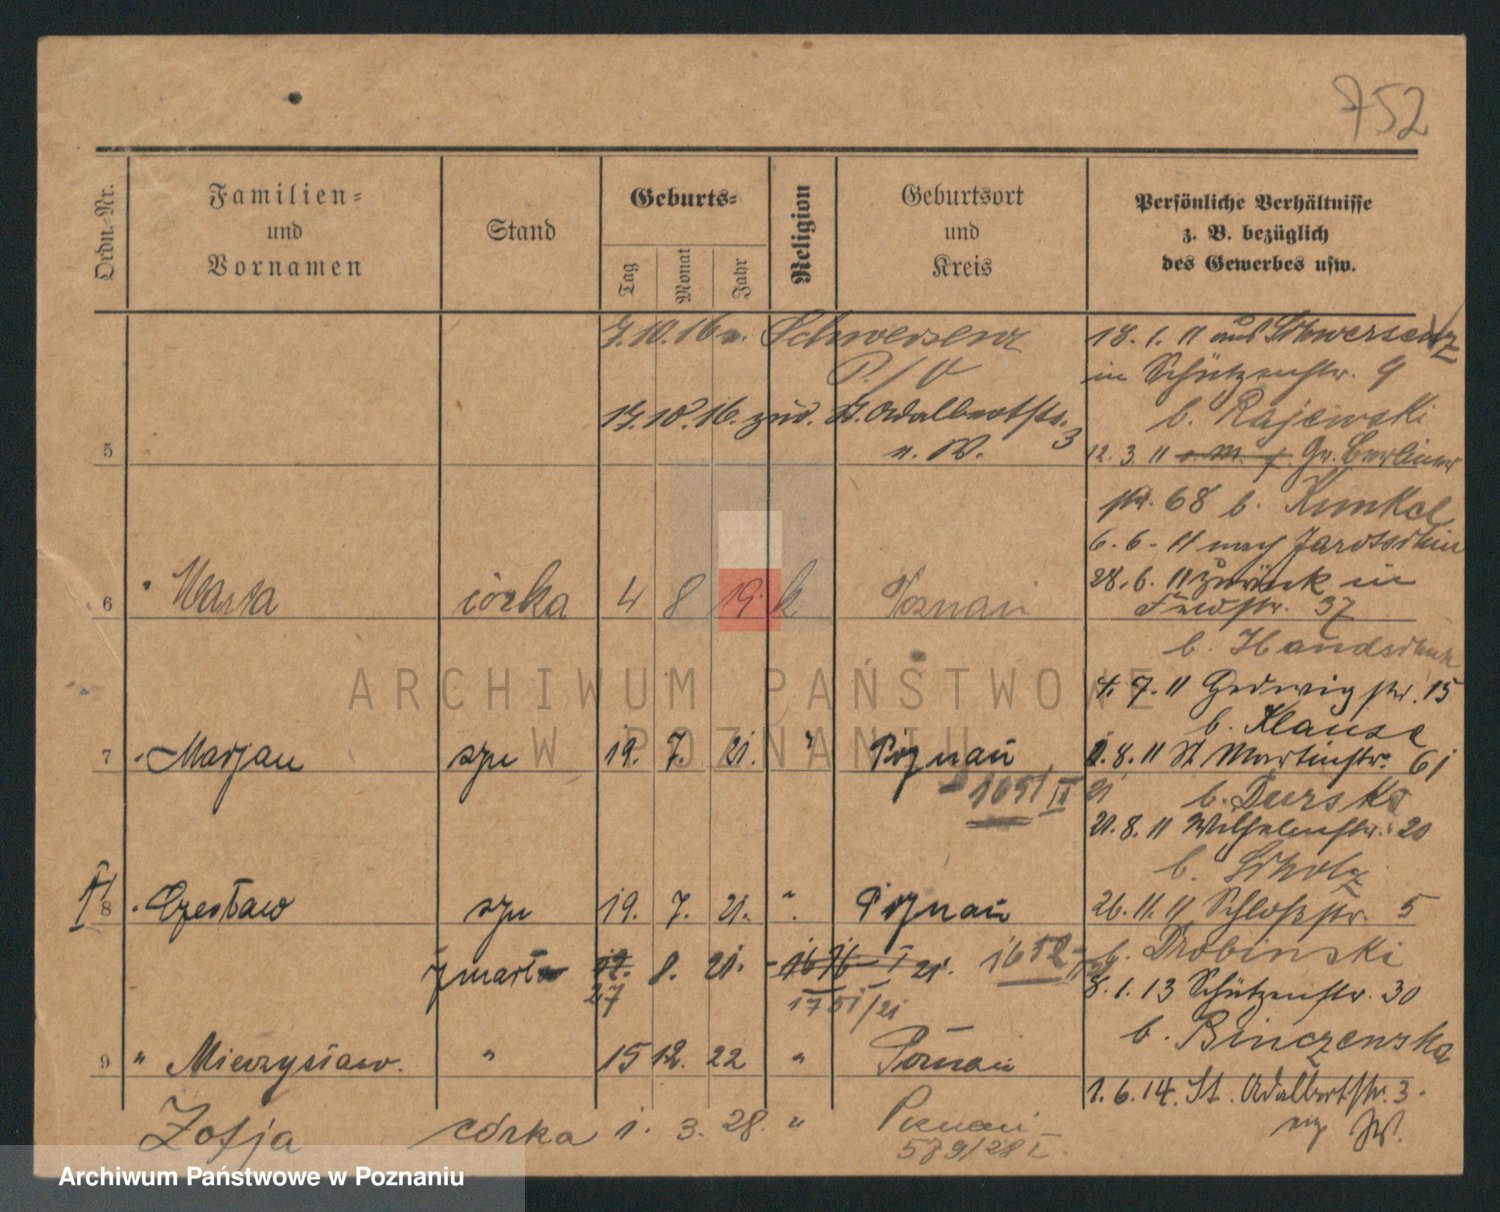 752
Ordn.-Nr.
Familien-
und
Vornamen
Stand
Geburts-
Tag
Monat
Jahr
Religion
Geburtsort
und
Kreis
Persönliche Verhältnisse
z. B. bezüglich
des Gewerbes usw.
7.10.16 n. Schwersenz
17.10.16. zur. St. Adalbertstr. 3
n. W.
5
6 " Marta córka 4 8 19. k Poznań
7 Marjan syn 19. 7. 21. " Poznań
1651/II 21
8 Czesław syn 19. 7. 21. " Poznań
zmarł 19. 8. 21. 1652
27
1751/21
9 " Mieczysław. " 15 12. 22 " Poznań
Zofja córka 1. 3. 28. " Poznań
579/28 I.
18. 1. 11 aus Schwersenz
in Schützenstr. 9
b. Rajewski
12. 3. 11 Gr. Berliner
str. 68 b. Kunkel
6. 6. 11 nach Jarotschin
28. 6. 11 zurück in
37
b. Handschuh
4. 7. 11 Hedwigstr. 15
b. Klause
1. 8. 11 St Martinstr. 61
b. Durska
21. 8. 11 Wilhelmstr. 20
b. Scholz
26. 11. 11 Schloßstr. 5
b. Drobinski
8. 1. 13 Schützenstr. 30
b. Binczewska
1. 6. 14. St. Adalbertstr. 3.
ARCHIWUM PAŃSTWOWE
W POZNANIU
Archiwum Państwowe w Poznaniu